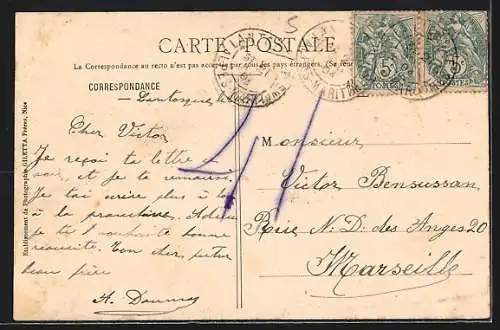 CARTE POSTALE
La Correspondance au recto n'est pas acceptée par tous les pays étrangers. (Se
CORRESPONDANCE
Lantosque
Cher Victor
Je reçoi ta lettre
soir, et je te remercie.
Je tai écrire plus à
à la prochaine. Adieu
je te l'souhaite bonne
réussite. Ton cher, futur
beau père
Monsieur,
Victor Bensussan
Rue N. D. des Anges 20
Marseille
Etablissement de Photographie GILETTA Frères, Nice
5
5
POSTES